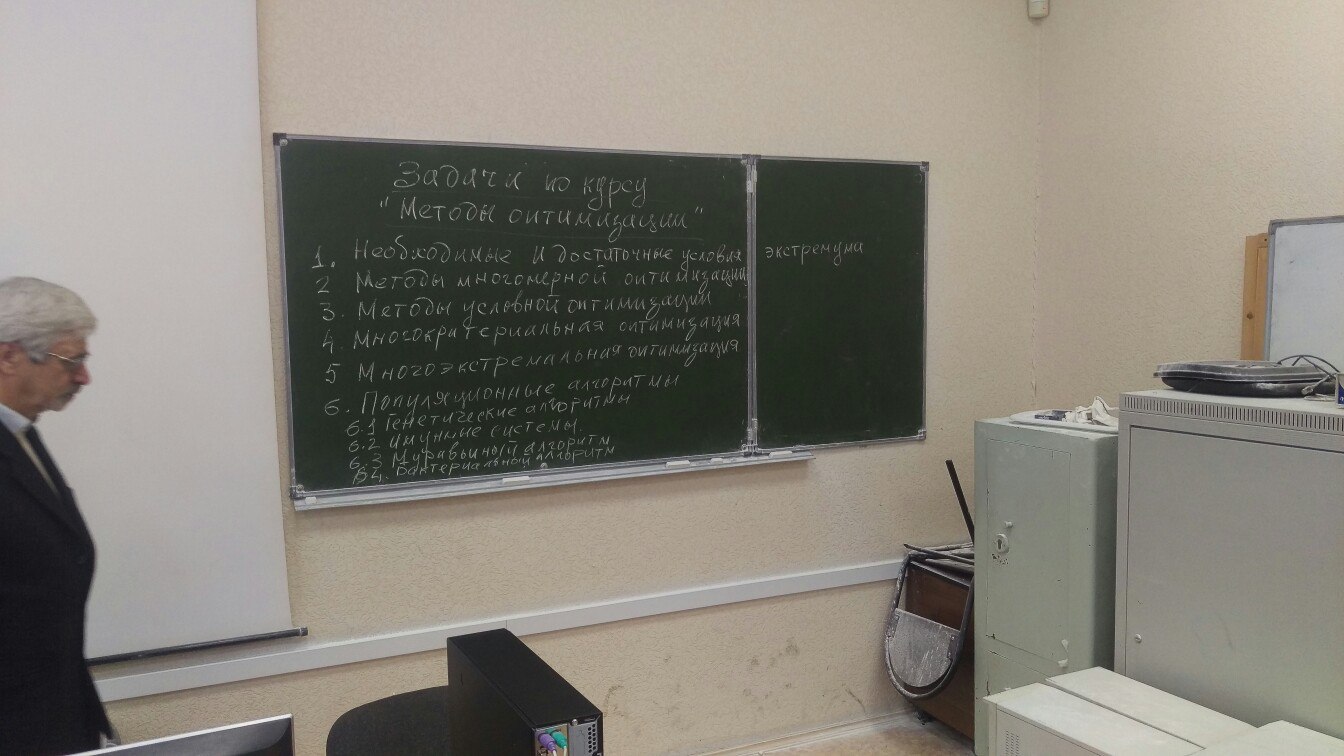 Задачи по курсу
"Методы оптимизации"
1. Необходимые и достаточные условия экстремума
2 Методы многомерной оптимизации
3. Методы условной оптимизации
4. Многокритериальная оптимизация
5 Многоэкстремальная оптимизация
6. Популяционные алгоритмы
6.1 Генетические алгоритмы
6.2 Имунные системы.
6.3 Муравьиный алгоритм
6 4. Бактериальный алгоритм